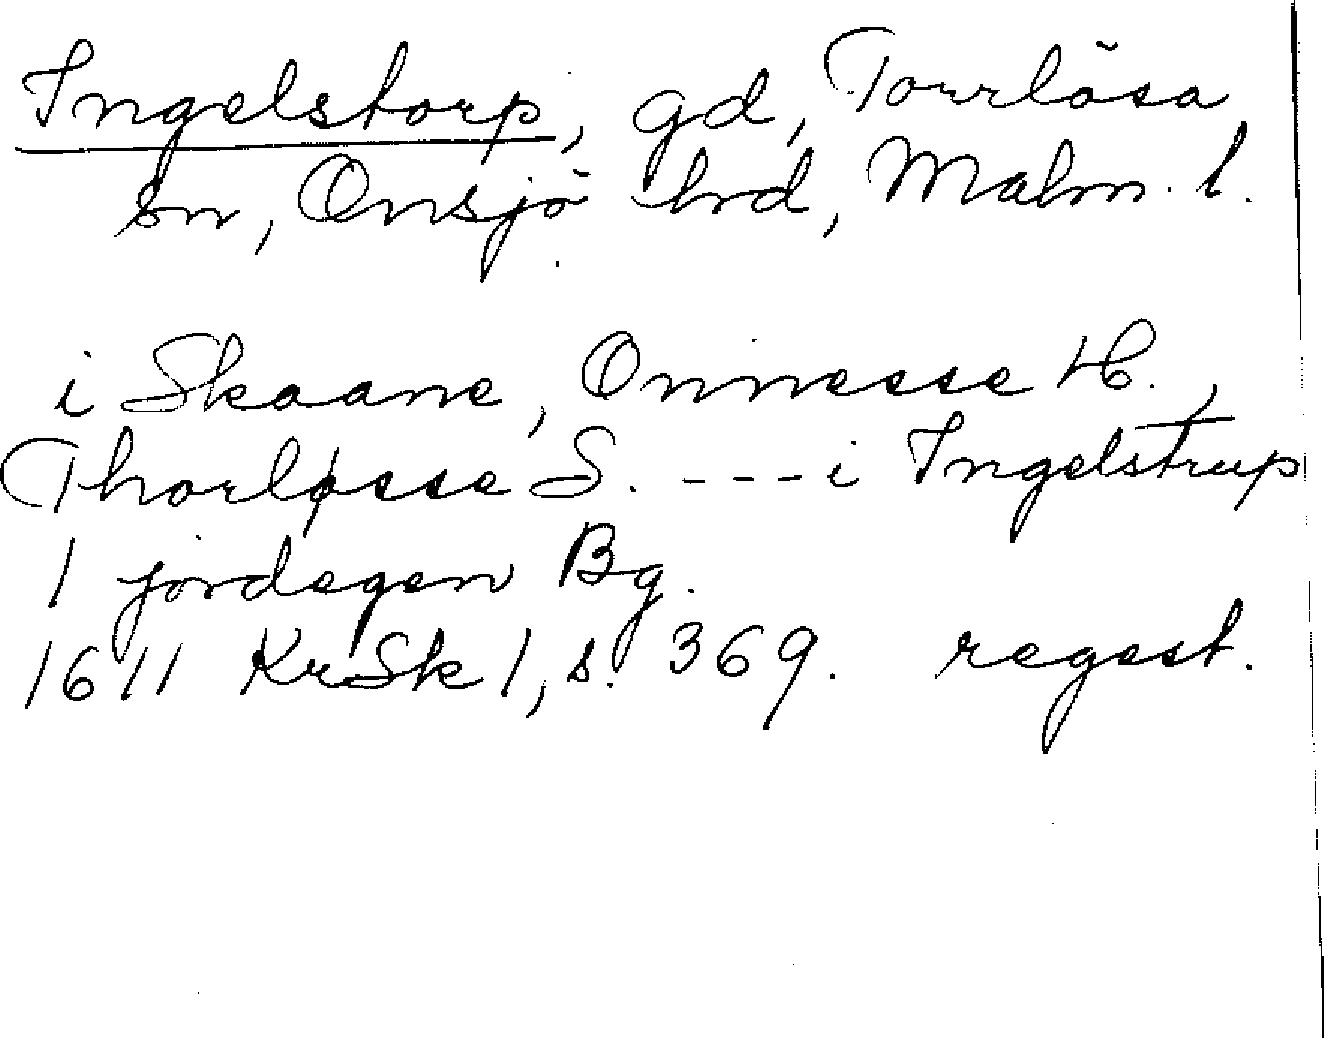 Ingelstorp, gd, Torrlösa
sn, Onsjö hrd, Malm. l.
i Skaane, Onnesse H.,
Thorløsse S. --- i Ingelstrup
1 jordegen Bg.
1611 KrSk 1, s. 369. regest.